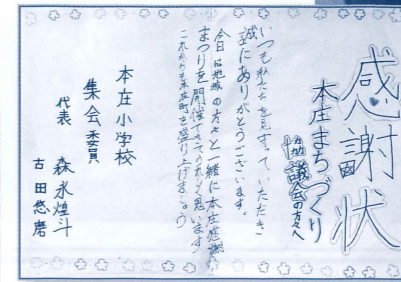 感謝状
本庄まちづくり
協議会の方々へ
いつも私たちを見守って、いただき
誠にありがとうございます。
今日は地域の方々と一緒に本庄感謝
まつりを開催できてうれしく思います
これからも本庄町を盛り上げましょう
本庄小学校
集会委員
代表 森永煌斗
古田悠磨